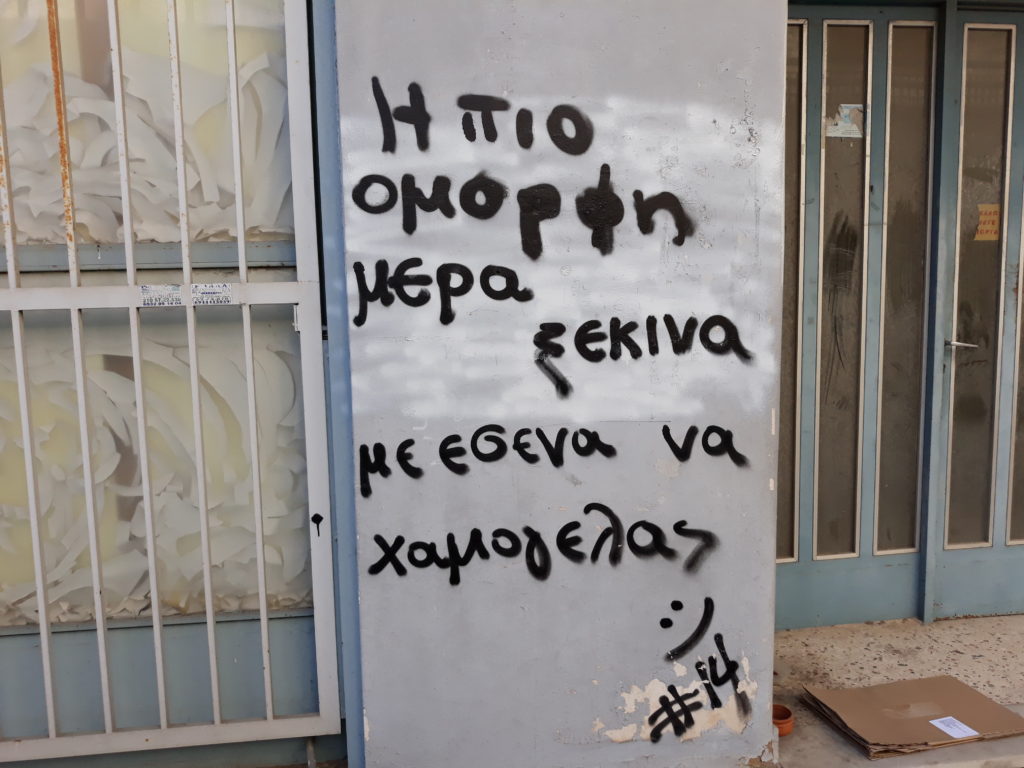 Η πιο
ομορφη
μερα
ξεκινα
με εσενα να
χαμογελας
:)
#14